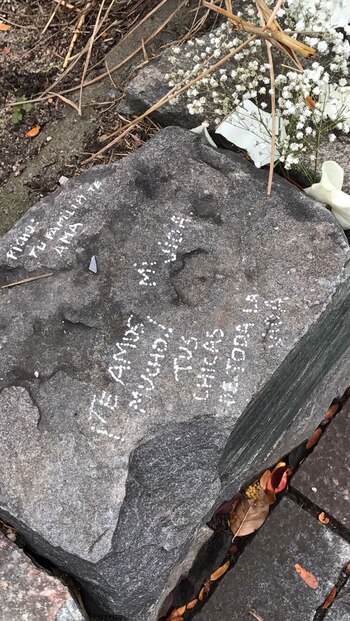 TU FAMILIA TE
AMA
MI VIEJA
¡¡TE AMOS
MUCHO!!
TUS
CHICAS
DE TODA LA
VIDA